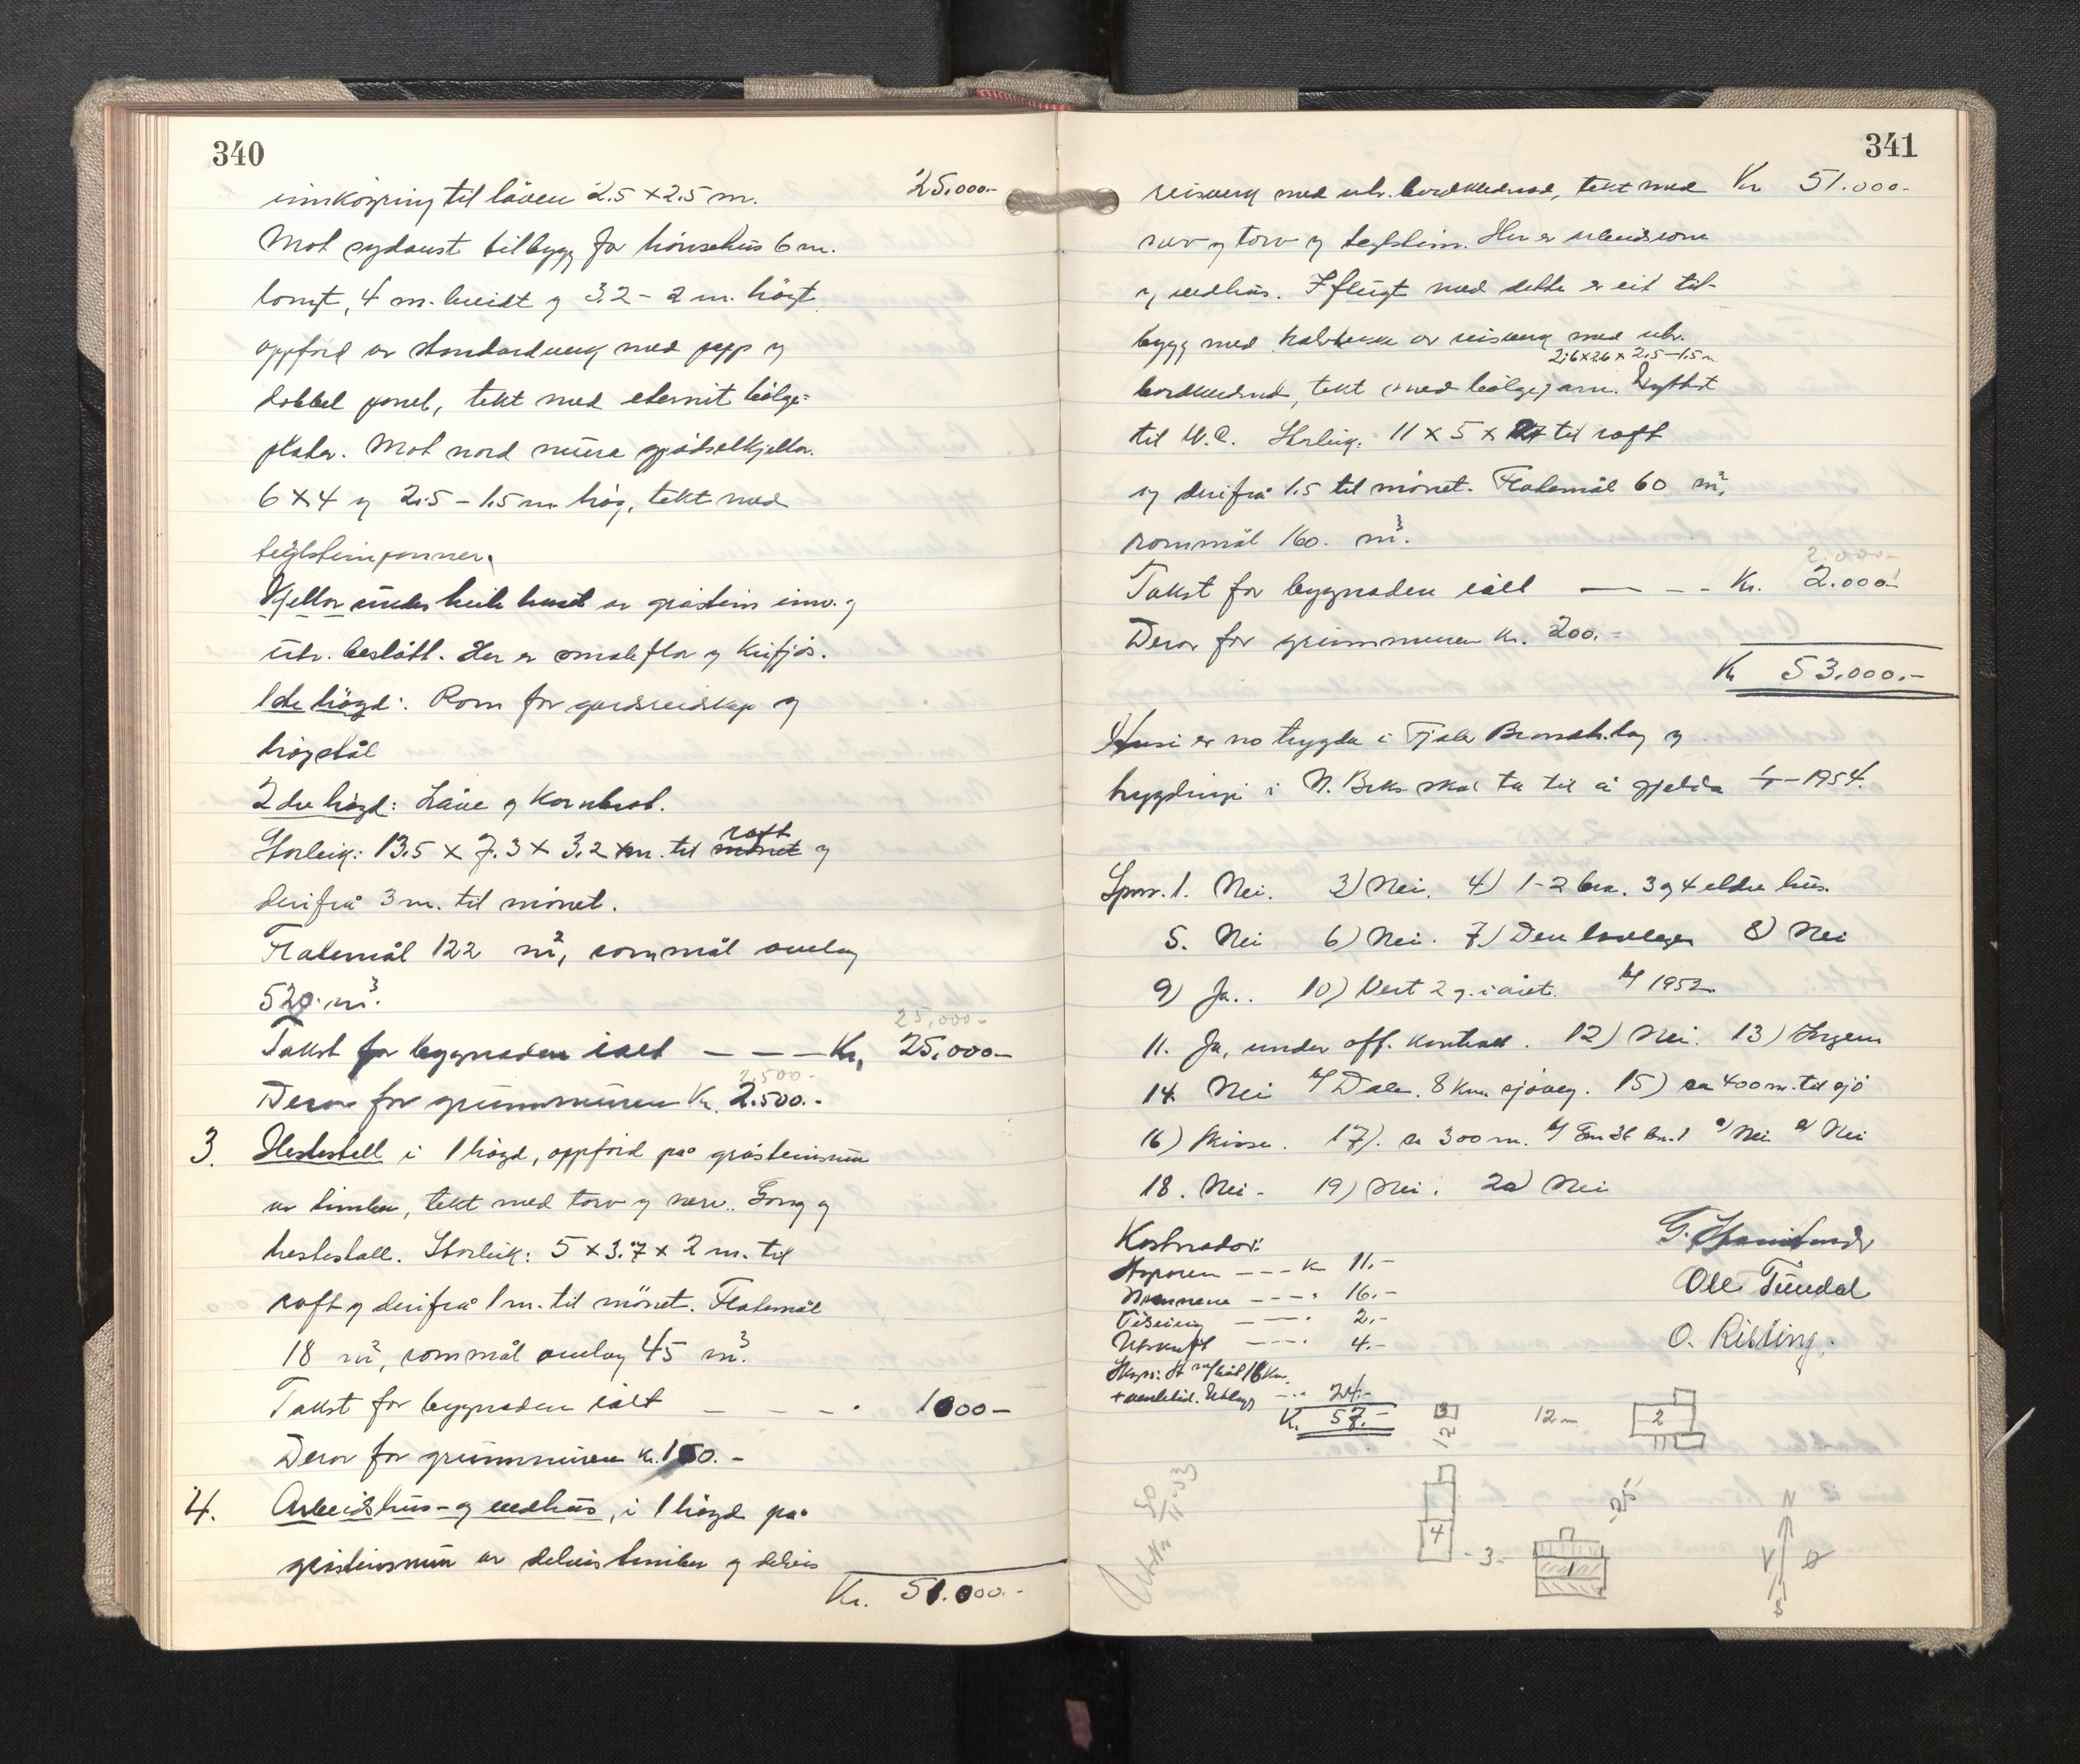 340
innköyring til låven 2.5 x 2.5 m. 25.000.-
Mot sydaust tilbygg for hönsehus 6 m.
langt, 4 m. breidt og 3.2 - 2 m. högt
oppförd av standardverk med papp og
dobbel panel, tekt med eternit bölge-
plater. Mot nord mura gjödselkjellar.
6 x 4 og 2.5 - 1.5 m hög, tekt med
teglsteinpanner.
Kjellar under heile huset av gråstein innv. og
utv. beslått. Her er smaleflor og kufjös.
1ste högd: Rom for gardsreidskap og
höystål
2dre högd: Låve og kornbod.
Storleik: 13.5 x 7.3 x 3.2 m. til mönet raft og
derifrå 3 m. til mönet.
Flatemål 122 m², rommål omlag
520 m³.
25,000-
Takst for bygnaden ialt - - - Kr. 25.000.-
2,500-
Derav for grunnmuren Kr. 2.500.-
3. Hestestall i 1 högd, oppförd på gråsteinsmur
av timber, tekt med torv og næv. Gang og
hestestall. Storleik: 5 x 3.7 x 2 m. til
raft og derifrå 1 m. til mönet. Flatemål
18 m², rommål omlag 45 m³.
Takst for bygnaden ialt - - - 1000-
Derav for grunnmuren kr. 150.-
4. Arbeidshus- og vedhus, i 1 högd på
gråsteinsmur av delvis timber og delvis
Kr. 51.000.-
341
reisverk med utv. bordklednad, tekt med Kr 51.000.-
næv og torv og teglstein. Her er arbeidsrom
og vedhus. I flugt med dette er eit til-
bygg med halvtekke av reisverk med utv.
2.6 x 2.6 x 2.5 - 1.5 m
bordkledned, tekt med bölgejarn. Nyttast
til W.C. Storleik: 11 x 5 x 2.7 til raft
og derifrå 1.5 til mönet. Flatemål 60 m²,
rommål 160. m³.
2.000-
Takst for bygnaden ialt - - - Kr. 2.000-
Derav for grunnmuren kr. 200.-
Kr 53.000.-
Husi er no trygda i Fjaler Brandtr.lag og
trygdingi i N. Brks skal ta til å gjelda 1/1-1954.
Spm. 1. Nei. 3) Nei. 4) 1-2 bra. 3 og 4 eldre hus.
5. Nei 6) Nei. 7) Den lovlege 8) Nei
9) Ja.. 10) Vert 2 g. i året. b/ 1952.
11. Ja, under off. kontroll. 12) Nei. 13) Ingen
14. Nei b/ Dale. 8 km sjöveg. 15) ca 400 m. til sjö
16) 17) ca 300 m. b/ Gnr 36 bn. 1 c/ Nei d/ Nei
18. Nei. 19) Nei. 20) Nei
Kostnader:
- - - kr 11.-
- - - " 16.-
- - - " 2.-
Utskrift - - - " 4.-
16 km.
24.-
Kr. 57.-
G.
Ole Tundal
O.
3 12 m 2
12
4 - 3 - 1 -25-
N V Ø S
30/11-53